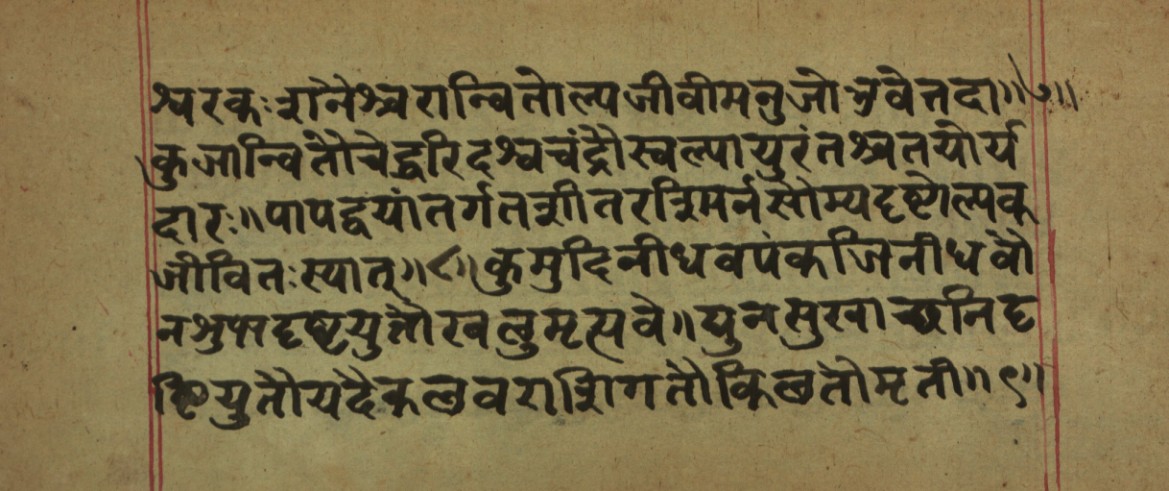 श्वरकः शनैश्चरान्वितोल्पजीवीमनुजोभवेत्तदा॥७॥
कुजान्वितौचेद्धरिदश्वचंद्रौस्वल्पायुरंतश्चतयोर्य
दारः॥पापद्वयांतर्गतशीतरश्मिर्नसौम्यदृष्टोल्पक
जीवितःस्यात्॥८॥कुमुदिनीधवपंकजिनीधवौ
नशुभदृष्टयुतौखलुमृत्यवे॥द्युनसुखाच्छनिदृ
ष्टियुतौयदैकलवराशिगतौकिलतौमृती॥९॥